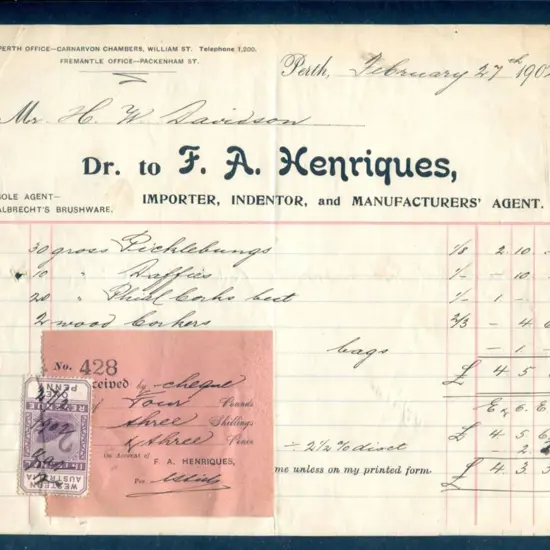 PERTH OFFICE—CARNARVON CHAMBERS, WILLIAM ST. Telephone 1,200.
FREMANTLE OFFICE—PACKENHAM ST.
Perth, February 27th 190
Mr H. W. Davidson
Dr. to F. A. Henriques,
SOLE AGENT—
ALBRECHT'S BRUSHWARE.
IMPORTER, INDENTOR, and MANUFACTURERS' AGENT.
30 gross Picklebungs 1/8 2. 10.
10 " Daffies 1/- - 10.
20 " Phial Corks best 1/- 1 - -
2 wood Corkers 2/3 - 4 6
bags - 1
£ 4 5
No. 428
Received by cheque
Four Pounds
three Shillings
& three Pence
On Account of
F. A. HENRIQUES,
Per
ONE PENNY
REVENUE
WESTERN AUSTRALIA
27/2
1902
E. & O. E.
£ 4 5 6
- 2½% disct - 2
me unless on my printed form.
£ 4 3